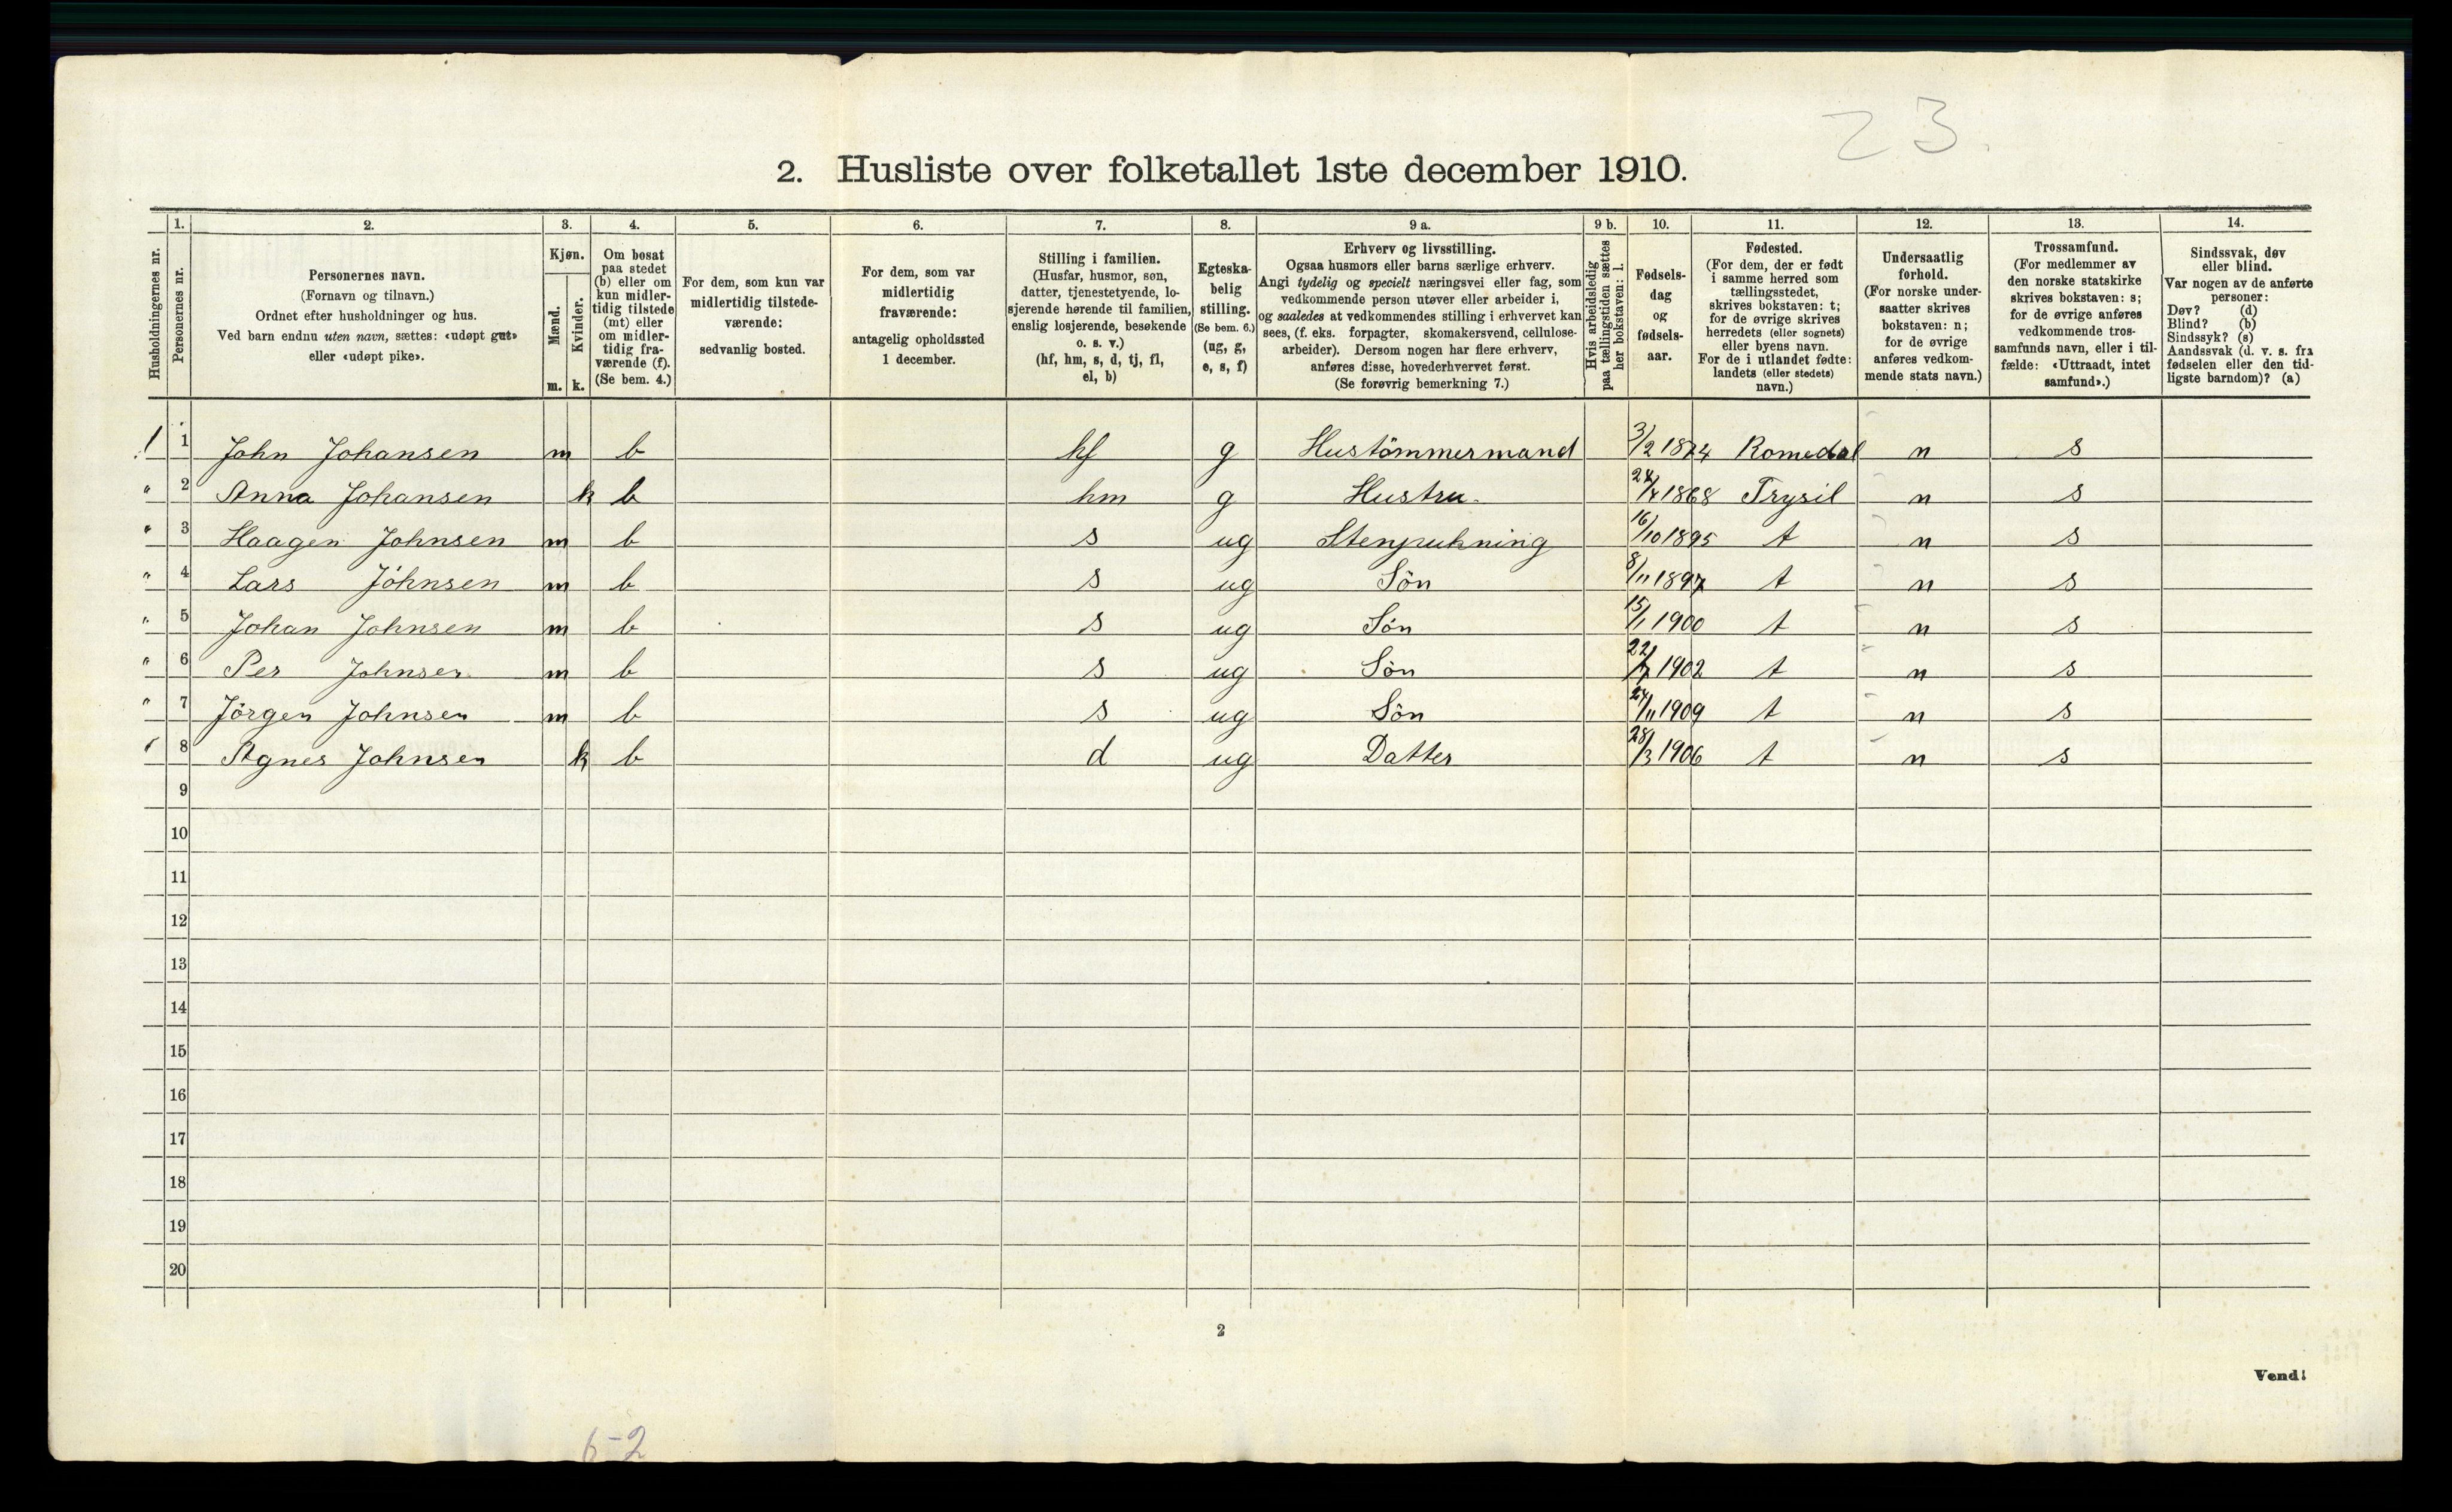 23.
2. Husliste over folketallet 1ste december 1910.
Husholdningernes nr.
1. Personernes nr.
2. Personernes navn. (Fornavn og tilnavn.) Ordnet efter husholdninger og hus. Ved barn endnu uten navn, sættes: «udøpt gut» eller «udøpt pike».
3. Kjøn. Mænd. m. Kvinder. k.
4. Om bosat paa stedet (b) eller om kun midlertidig tilstede (mt) eller om midlertidig fraværende (f). (Se bem. 4.)
5. For dem, som kun var midlertidig tilstedeværende: sedvanlig bosted.
6. For dem, som var midlertidig fraværende: antagelig opholdssted 1 december.
7. Stilling i familien. (Husfar, husmor, søn, datter, tjenestetyende, losjerende hørende til familien, enslig losjerende, besøkende o. s. v.) (hf, hm, s, d, tj, fl, el, b)
8. Egteskabelig stilling. (Se bem. 6.) (ug, g, e, s, f)
9 a. Erhverv og livsstilling. Ogsaa husmors eller barns særlige erhverv. Angi tydelig og specielt næringsvei eller fag, som vedkommende person utøver eller arbeider i, og saaledes at vedkommendes stilling i erhvervet kan sees, (f. eks. forpagter, skomakersvend, cellulosearbeider). Dersom nogen har flere erhverv, anføres disse, hovederhvervet først. (Se forøvrig bemerkning 7.)
9 b. Hvis arbeidsledig paa tællingstiden sættes her bokstaven: l.
10. Fødselsdag og fødselsaar.
11. Fødested. (For dem, der er født i samme herred som tællingsstedet, skrives bokstaven: t; for de øvrige skrives herredets (eller sognets) eller byens navn. For de i utlandet fødte: landets (eller stedets) navn.)
12. Undersaatlig forhold. (For norske undersaatter skrives bokstaven: n; for de øvrige anføres vedkommende stats navn.)
13. Trossamfund. (For medlemmer av den norske statskirke skrives bokstaven: s; for de øvrige anføres vedkommende trossamfunds navn, eller i tilfælde: «Uttraadt, intet samfund».)
14. Sindssvak, døv eller blind. Var nogen av de anførte personer: Døv? (d) Blind? (b) Sindssyk? (s) Aandssvak (d. v. s. fra fødselen eller den tidligste barndom)? (a)
1 1 John Johansen m b hf g Hustömmermand 3/2 1874 Romedal n s
" 2 Anna Johansen k b hm g Hustru. 1868 Trysil n s
" 3 Haagen Johnsen m b s ug Stenpukning 16/10 1895 t n s
" 4 Lars Johnsen m b s ug Sön 8/11 1897 t n s
" 5 Johan Johnsen m b s ug Sön 15/1 1900 t n s
" 6 Per Johnsen m b s ug Sön 22/7 1902 t n s
" 7 Jörgen Johnsen m b s ug Sön 24/11 1909 t n s
" 8 Agnes Johnsen k b d ug Datter 28/3 1906 t n s
9
10
11
12
13
14
15
16
17
18
19
20
2
Vend!
6-2